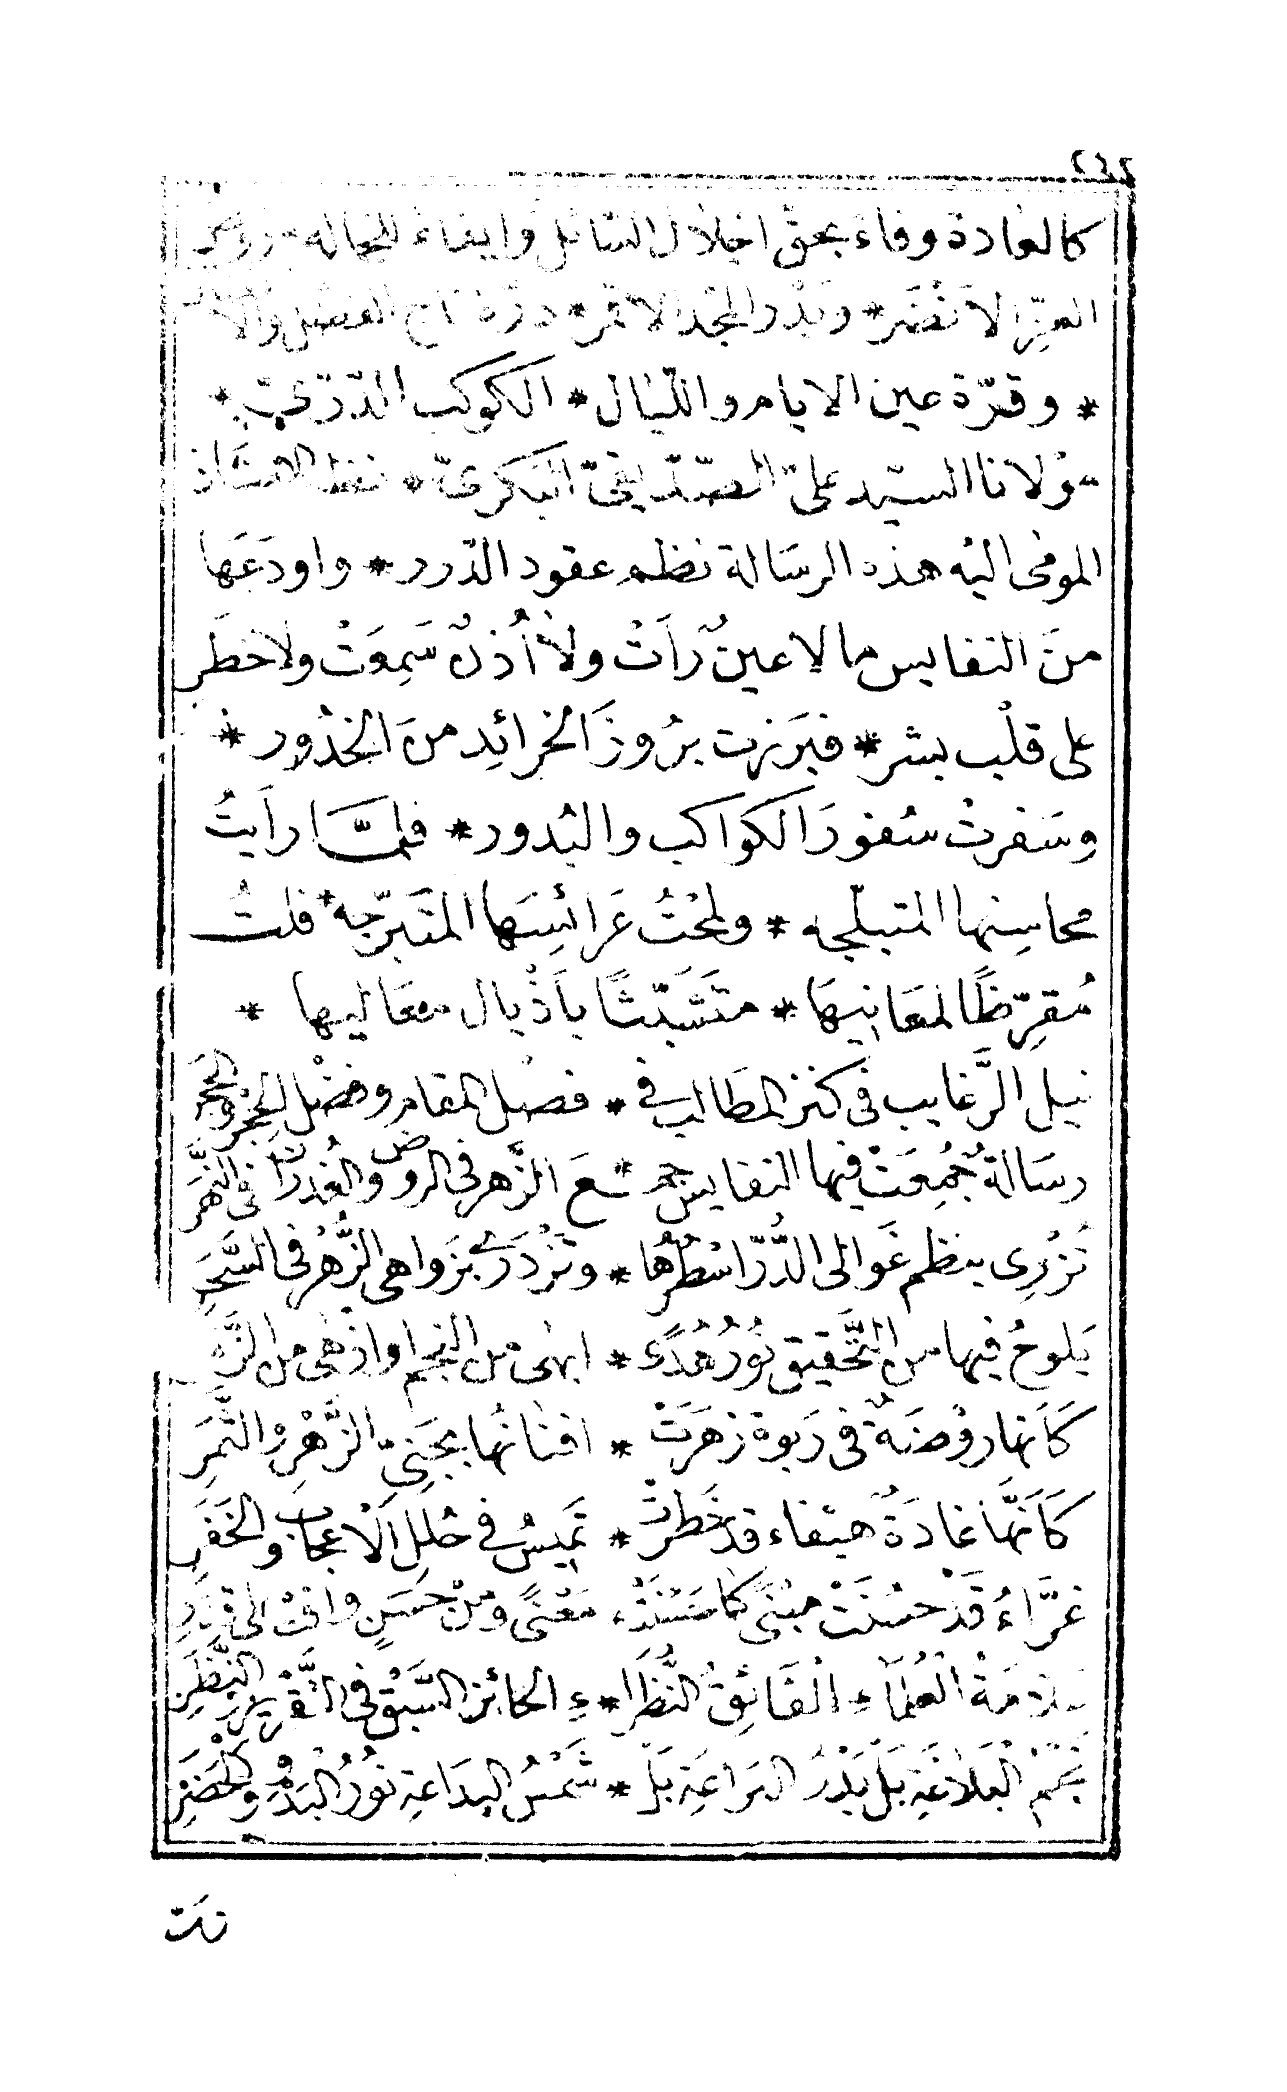 ٢٤٢
كالعادة وفاء بحق اجلال السائل وايفاء للحاله
العز الانضر * وبدر المجد الاقمر * درة تاج الفضل والا
* وقرّة عين الايام والليال * الكوكب الدّرّيّ *
مولانا السيّد علىّ الصّدّيقىّ البكرىّ * نظم الاستاذ
المومى اليه هذه الرسَالة نظم عقود الدّرر * واودَعَها
منَ النفايس ما لا عينٌ رَاَتْ ولا أُذنٌ سَمِعَتْ ولاخطَر
على قلْب بشر * فبرَزت برُوزَ الخرائِد منَ الخدُور *
وسَفرتْ سُفورَ الكواكب والبُدور * فلمّا رايتُ
محاسِنها المتبلّجه * ولمحْتُ عَرائسَها المتَبرّجه * قلتُ
مُقرِّظًا لمعَانيهَا * متَشَبّثًا باَذْيال معَاليها *
نيل الرَّغايب فى كنز المطَالب فى * فضل المقام وفضْل الحِجْر والحَجَر
رسَالةٌ جُمِعَتْ فيها النفايس جمـ * ـعَ الزَّهر فى الروض والغُدرَان فى النَّهَر
تُزْرِى بنظم غَوالى الدُّرّ اسْطُرُهَا * وتَزْدَرِى بزَواهى الزُّهْر فى السَّحَرِ
يَلوحُ فيها من التَّحقيق نُورُ هُدًى * ابهٰى من النجم او ازهٰى من الزَّهر
كَاَنها روْضَةٌ فى رَبوة زهَرَتْ * افنانُها بجَنِىّ الزَّهْرِ والثَّمَرِ
كَاَنَّها غادَةٌ هيفاء قد خَطَرتْ * تَميسُ فى حُلل الاعجاب والخَفَرِ
غرَّاءُ قَدْ حسُنَتْ مبْنًى كما حَسُنَتْ * مَعْنًى ومنْ حسَنٍ وافتْ
علّامةُ العُلماءِ الفَائِقُ النُّظَرا * ءِ الحائز السَّبْق فى التَّقْرير والنَّظَرِ
نجمُ البَلاغَةِ بَلْ بَدْرُ البَراعَةِ بَلْ * شَمْسُ البدَاعةِ نُورُ البَدْوِ والحَضَرِ